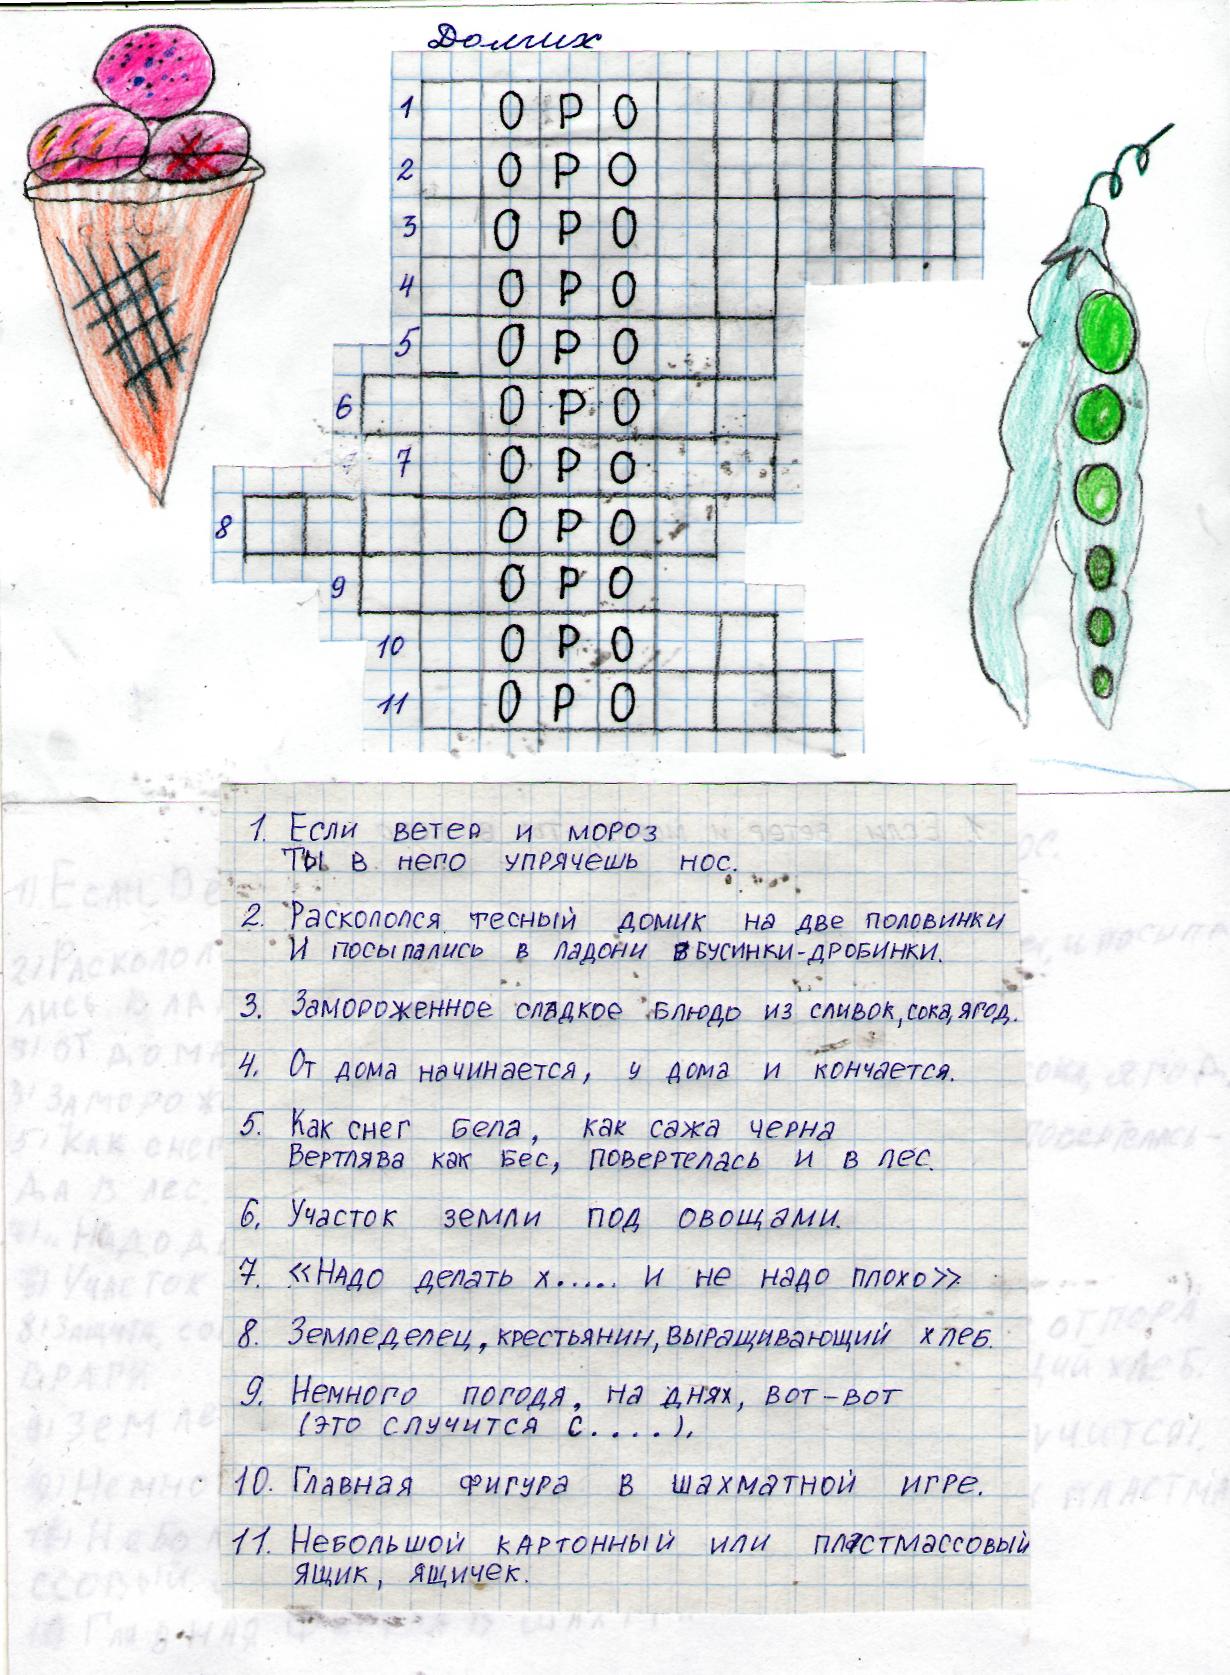 Долгих
1 О Р О
2 О Р О
3 О Р О
4 О Р О
5 О Р О
6 О Р О
7 О Р О
8 О Р О
9 О Р О
10 О Р О
11 О Р О
1. Если ветер и мороз
Ты в него упрячешь нос.
2. Раскололся тесный домик на две половинки
И посыпались в ладони бусинки-дробинки.
3. Замороженное сладкое блюдо из сливок, сока, ягод.
4. От дома начинается, у дома и кончается.
5. Как снег бела, как сажа черна
Вертлява как бес, повертелась и в лес.
6. Участок земли под овощами.
7. «Надо делать х..... и не надо плохо»
8. Земледелец, крестьянин, выращивающий хлеб.
9. Немного погодя, на днях, вот-вот
(это случится с....).
10. Главная фигура в шахматной игре.
11. Небольшой картонный или пластмассовый
ящик, ящичек.